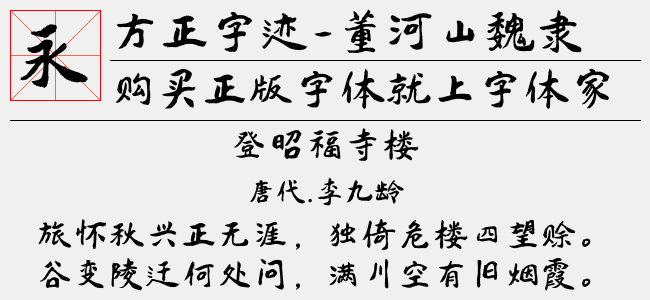 永
方正字迹-董河山魏隶
购买正版字体就上字体家
登昭福寺楼
唐代.李九龄
旅怀秋兴正无涯，独倚危楼四望赊。
谷变陵迁何处问，满川空有旧烟霞。